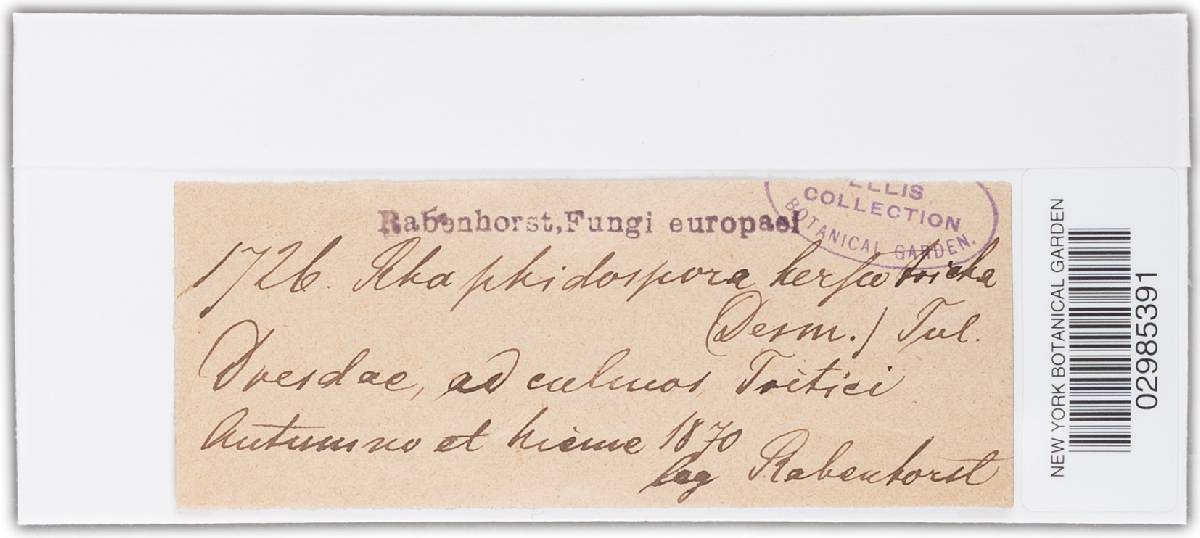 ELLIS
COLLECTION
BOTANICAL GARDEN.
Rabenhorst, Fungi europaei
1726. Rhaphidospora herpotricha
(Desm.) Tul.
Dresdae, ad culmos Tritici
Autumno et hieme 1870
leg Rabenhorst
NEW YORK BOTANICAL GARDEN
02985391